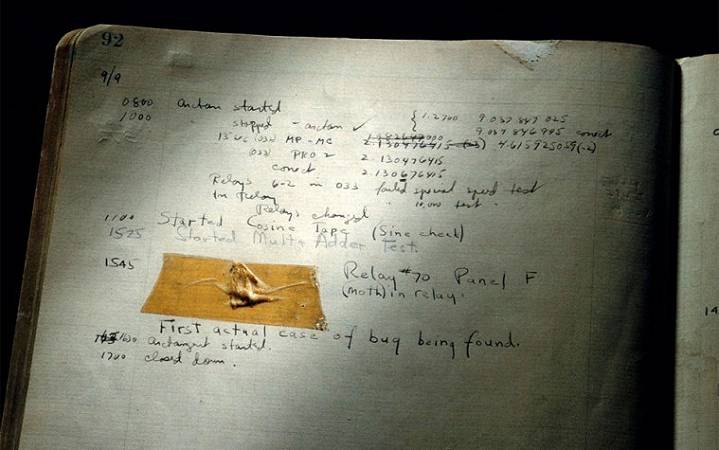 92
9/9
0800 antan started
1000 " stopped - antan ✓ { 1.2700 9.037 847 025
9.037 846 995 conect
13"uc (032) MP-MC 2.130476415 4.615925059(-2)
(033) PRO 2 2.130476415
conect 2.130676415
Relays 6-2 in 033 failed special speed test
in Relay " 10,000 test.
Relays changed
1100 Started Cosine Tape (Sine check)
1525 Started Mult+Adder Test.
1545 Relay #70 Panel F
(moth) in relay.
First actual case of bug being found.
1630 antangent started.
1700 closed down.
14